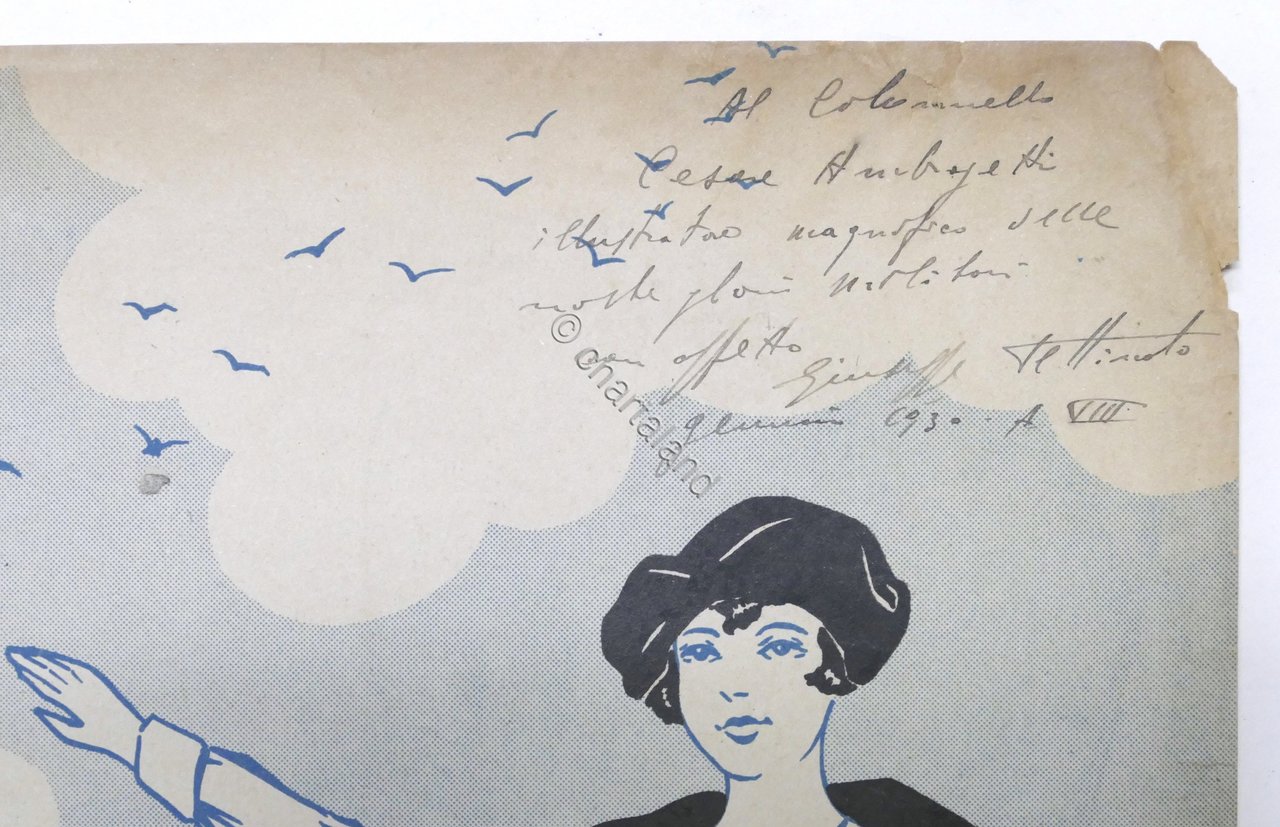 Al Colonnello
Cesare Ambrogetti
illustratore magnifico delle
nostre glorie militari
con affetto Giuseppe
gennaio 1930. A VIII
© chartaland